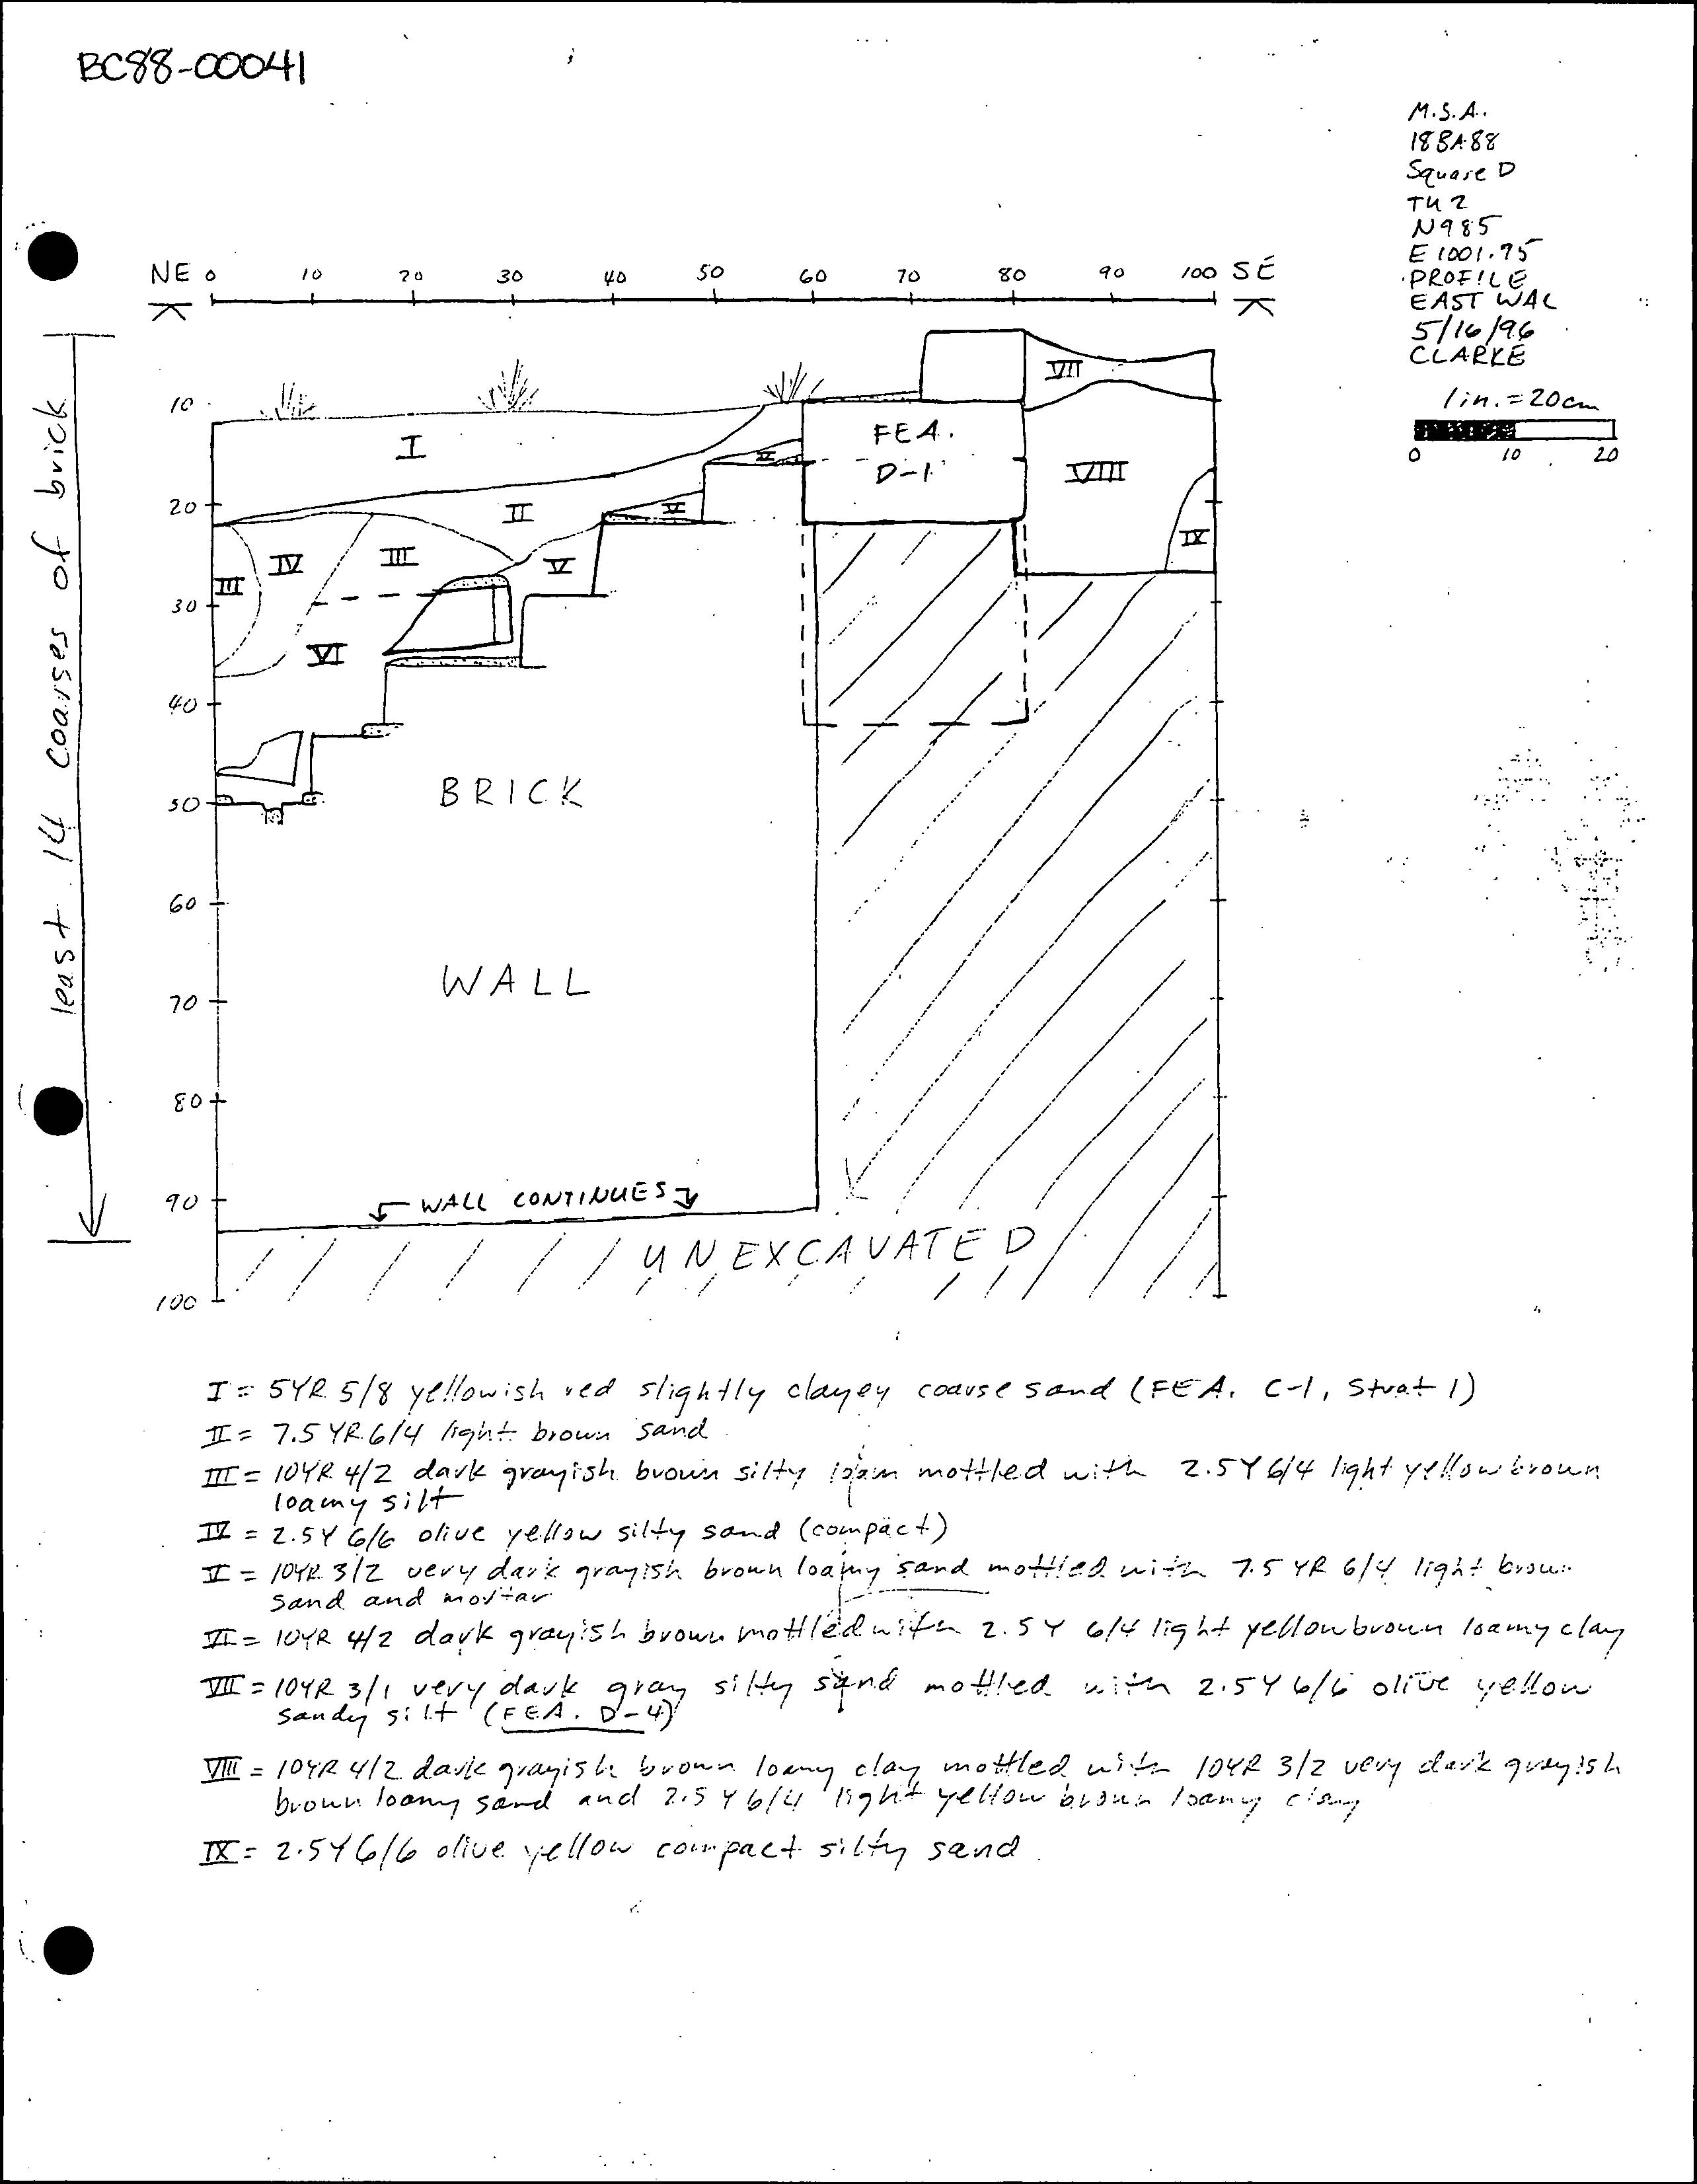 BC88-00041
M.S.A.
18BA88
Square D
TU 2
N985
E 1001.75
PROFILE
EAST WAL
5/16/96
CLARKE
1 in. = 20cm
0 10 20
NE 0 10 20 30 40 50 60 70 80 90 100 SE
least 14 coarses of brick
10
20
30
40
50
60
70
80
90
100
VII
I
FEA.
D-1
VIII
V
II
V
IX
IV
III
V
III
VI
BRICK
WALL
WALL CONTINUES
UNEXCAVATED
I = 5YR 5/8 yellowish red slightly clayey coarse sand (FEA. C-1, Strat 1)
II = 7.5 YR 6/4 light brown sand
III = 10YR 4/2 dark grayish brown silty loam mottled with 2.5Y 6/4 light yellow brown
loamy silt
IV = 2.5Y 6/6 olive yellow silty sand (compact)
V = 10YR 3/2 very dark grayish brown loamy sand mottled with 7.5 YR 6/4 light brown
sand and mortar
VI = 10YR 4/2 dark grayish brown mottled with 2.5Y 6/4 light yellow brown loamy clay
VII = 10YR 3/1 very dark gray silty sand mottled with 2.5Y 6/6 olive yellow
sandy silt (FEA. D-4)
VIII = 10YR 4/2 dark grayish brown loamy clay mottled with 10YR 3/2 very dark grayish
brown loamy sand and 2.5Y 6/4 light yellow brown loamy clay
IX = 2.5Y 6/6 olive yellow compact silty sand